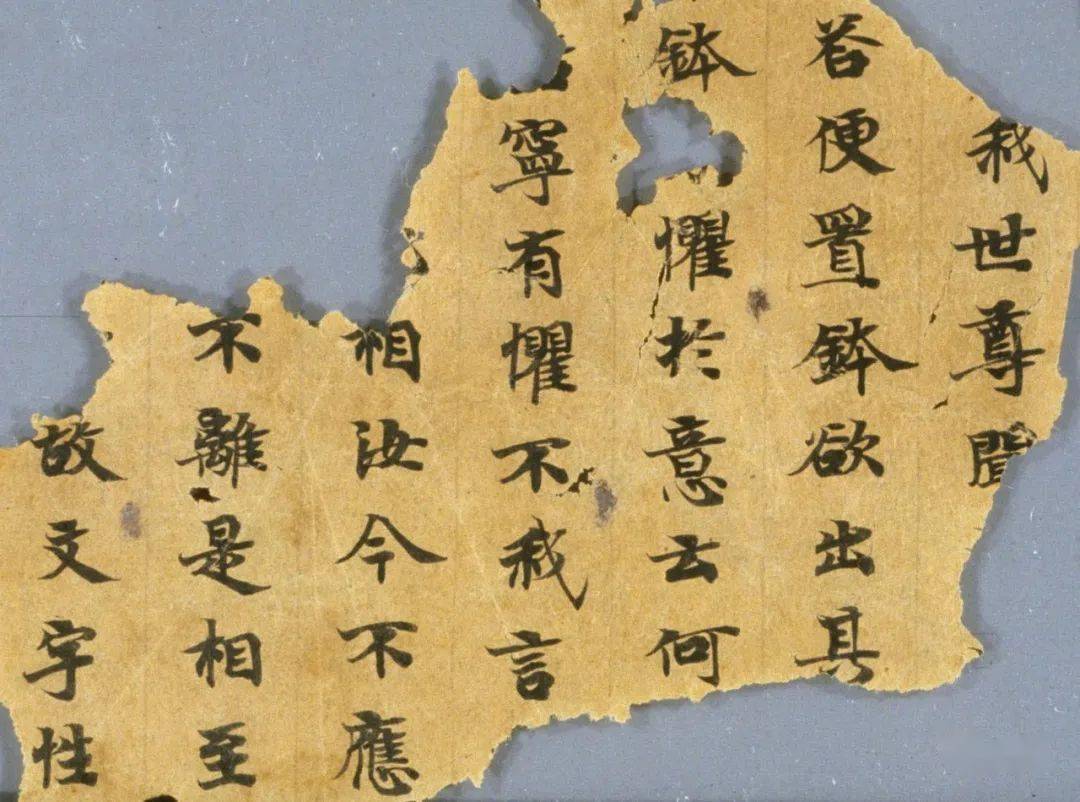 我世尊聞
荅便置鉢欲出其
鉢懼於意云何
寧有懼不我言
相汝今不應
不離是相至
故文字性